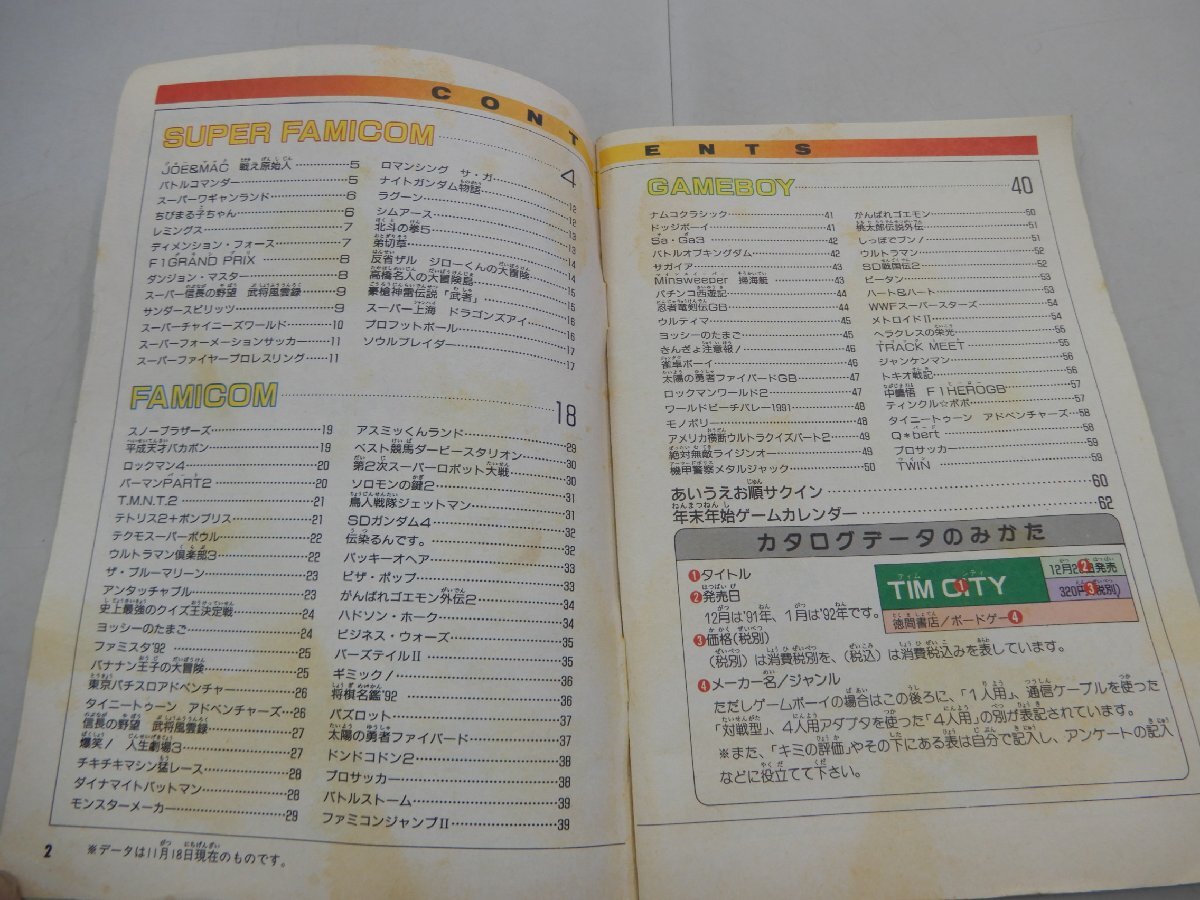 CONTENTS
SUPER FAMICOM 4
JOE&MAC 戦え原始人 5
バトルコマンダー 5
スーパーワギャンランド 6
ちびまる子ちゃん 6
レミングス 7
ディメンション・フォース 7
F1 GRAND PRIX 8
ダンジョン・マスター 8
スーパー信長の野望 武将風雲録 9
サンダースピリッツ 9
スーパーチャイニーズワールド 10
スーパーフォーメーションサッカー 11
スーパーファイヤープロレスリング 11
ロマンシング サ・ガ
ナイトガンダム物語 12
ラグーン 12
シムアース 13
北斗の拳5 13
弟切草 14
反省ザル ジローくんの大冒険 14
高橋名人の大冒険島 15
豪槍神雷伝説「武者」 15
スーパー上海 ドラゴンズアイ 16
プロフットボール 16
ソウルブレイダー 17
17
FAMICOM 18
スノーブラザーズ 19
平成天才バカボン 19
ロックマン4 20
パーマンPART2 20
T.M.N.T.2 21
テトリス2+ボンブリス 21
テクモスーパーボウル 22
ウルトラマン倶楽部3 22
ザ・ブルーマリーン 23
アンタッチャブル 23
史上最強のクイズ王決定戦 24
ヨッシーのたまご 24
ファミスタ'92 25
バナナン王子の大冒険 25
東京パチスロアドベンチャー 26
タイニートゥーン アドベンチャーズ 26
信長の野望 武将風雲録 27
爆笑!人生劇場3 27
チキチキマシン猛レース 28
ダイナマイトバットマン 28
モンスターメーカー 29
アスミッくんランド 29
ベスト競馬ダービースタリオン 30
第2次スーパーロボット大戦 30
ソロモンの鍵2 31
鳥人戦隊ジェットマン 31
SDガンダム4 32
伝染るんです。 32
バッキーオヘア 33
ピザ・ポップ 33
がんばれゴエモン外伝2 34
ハドソン・ホーク 34
ビジネス・ウォーズ 35
バーズテイルII 35
ギミック! 36
将棋名鑑'92 36
バズロット 37
太陽の勇者ファイバード 37
ドンドコドン2 38
プロサッカー 38
バトルストーム 39
ファミコンジャンプII 39
2 ※データは11月18日現在のものです。
GAMEBOY 40
ナムコクラシック 41
ドッジボーイ 41
Sa・Ga3 42
バトルオブキングダム 42
サガイア 43
Minsweeper 掃海艇 43
パチンコ西遊記 44
忍者竜剣伝GB 44
ウルティマ 45
ヨッシーのたまご 45
きんぎょ注意報! 46
雀卓ボーイ 46
太陽の勇者ファイバードGB 47
ロックマンワールド2 47
ワールドビーチバレー1991 48
モノポリー 48
アメリカ横断ウルトラクイズパート2 49
絶対無敵ライジンオー 49
機甲警察メタルジャック 50
がんばれゴエモン 50
桃太郎伝説外伝 51
しっぽでブン! 51
ウルトラマン 52
SD戦国伝2 52
ピータン 53
ハート&ハート 53
WWFスーパースターズ 54
メトロイドII 54
ヘラクレスの栄光 55
TRACK MEET 55
ジャンケンマン 56
トキオ戦記 56
中嶋悟 F1HEROGB 57
ティンクル☆ポポ 57
タイニートゥーン アドベンチャーズ 58
Q*bert 58
プロサッカー 59
TWIN 59
あいうえお順サクイン 60
年末年始ゲームカレンダー 62
カタログデータのみかた
❶タイトル
❷発売日
12月は'91年、1月は'92年です。
❸価格(税別)
(税別)は消費税別を、(税込)は消費税込みを表しています。
❹メーカー名/ジャンル
ただしゲームボーイの場合はこの後ろに、「1人用」、通信ケーブルを使った
「対戦型」、4人用アダプタを使った「4人用」の別が表記されています。
※また、「キミの評価」やその下にある表は自分で記入し、アンケートの記入
などに役立てて下さい。
TIM CITY
12月2 発売
320円 税別)
徳間書店/ボードゲー